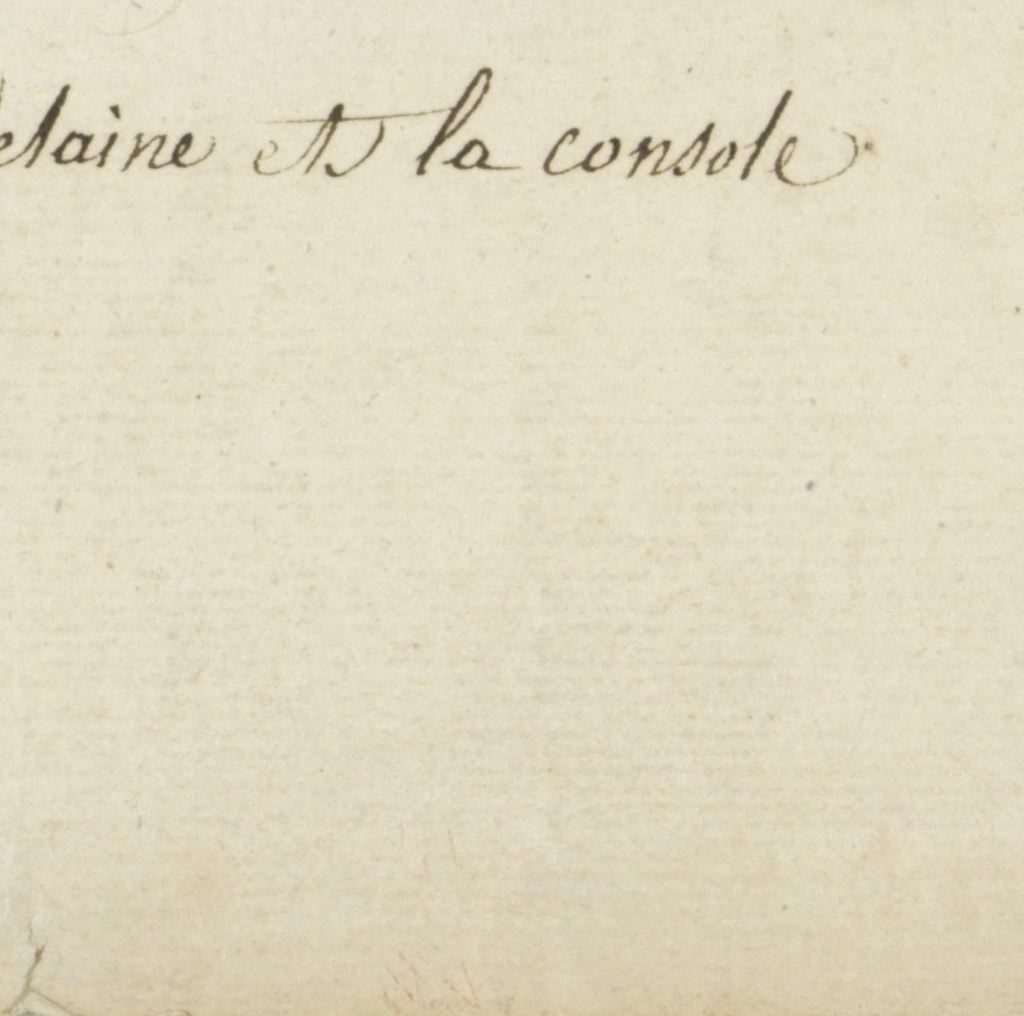 elaine et la console.